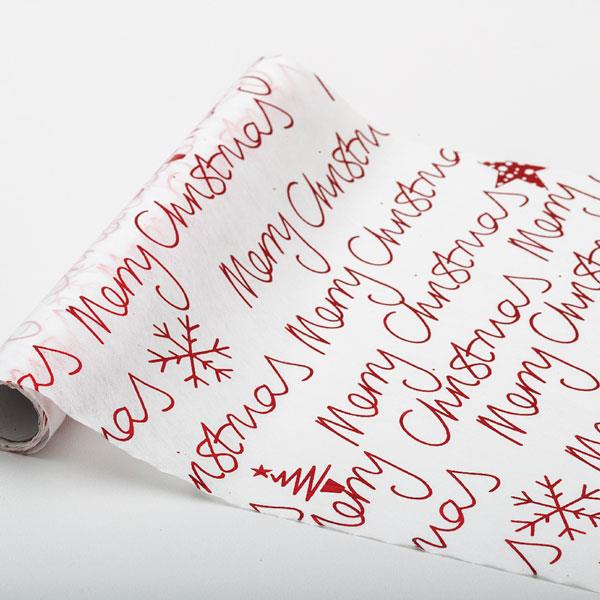 Merry Christmas
Merry Christm
Merry Christmas
Merry Christmas
Merry Christmas
Merry Christmas
Merry
Merry